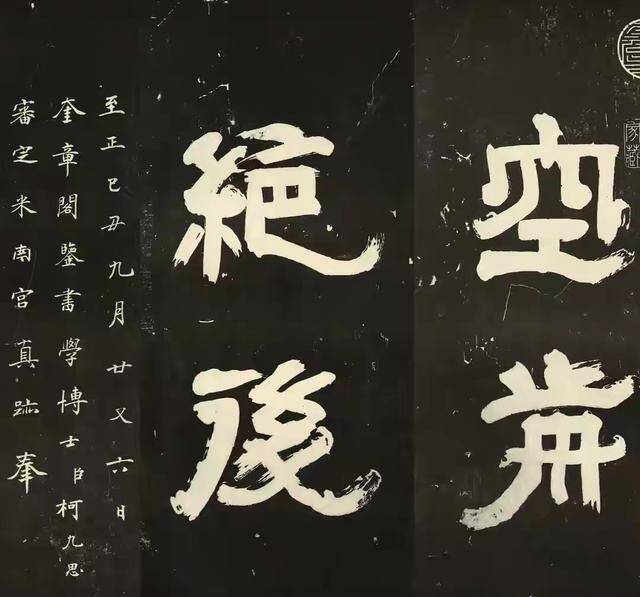 家藏
空歬
絶後
至正己丑九月廿又六日
奎章閣鑒書學博士臣柯九思
審定米南宮真跡奉